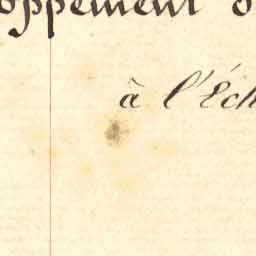 oppement d
à l'Éch